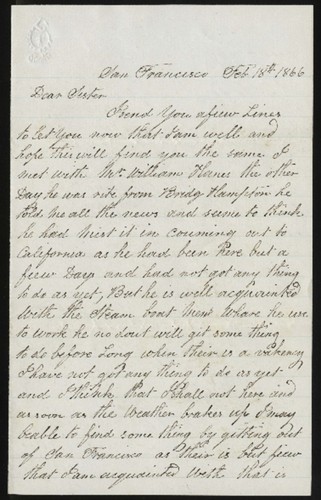 San Francisco Feb 18th 1866
Dear Sister
I send You a fiew Lines
to Let You now that I am well and
hope this will find you the same I
met with Mr. William Hanes the other
Day he was rite from Bridg Hampton he
told me all the news and seems to think
he had mist it in couming out to
California as he had been here but a
fiew Days and had not got any thing
to do as yet, But he is well acquainted
with the Steam boat men whare he use
to work he no dout will git some thing
to do before Long when their is a vakency
I have not got any thing to do as yet
and I think that I shall not here and
as soon as the weather brakes up I may
beable to find some thing by gitting out
of San Francisco as their is but fiew
that I am acquainted with that is